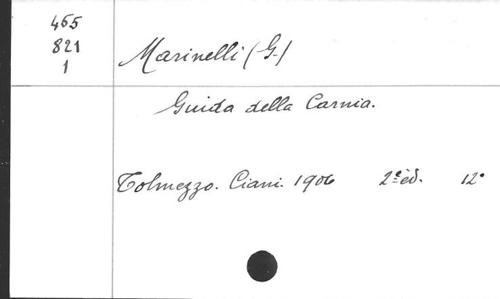 465
821
1
Marinelli (G.)
Guida della Carnia.
Tolmezzo. Ciani. 1906 2e éd. 12°